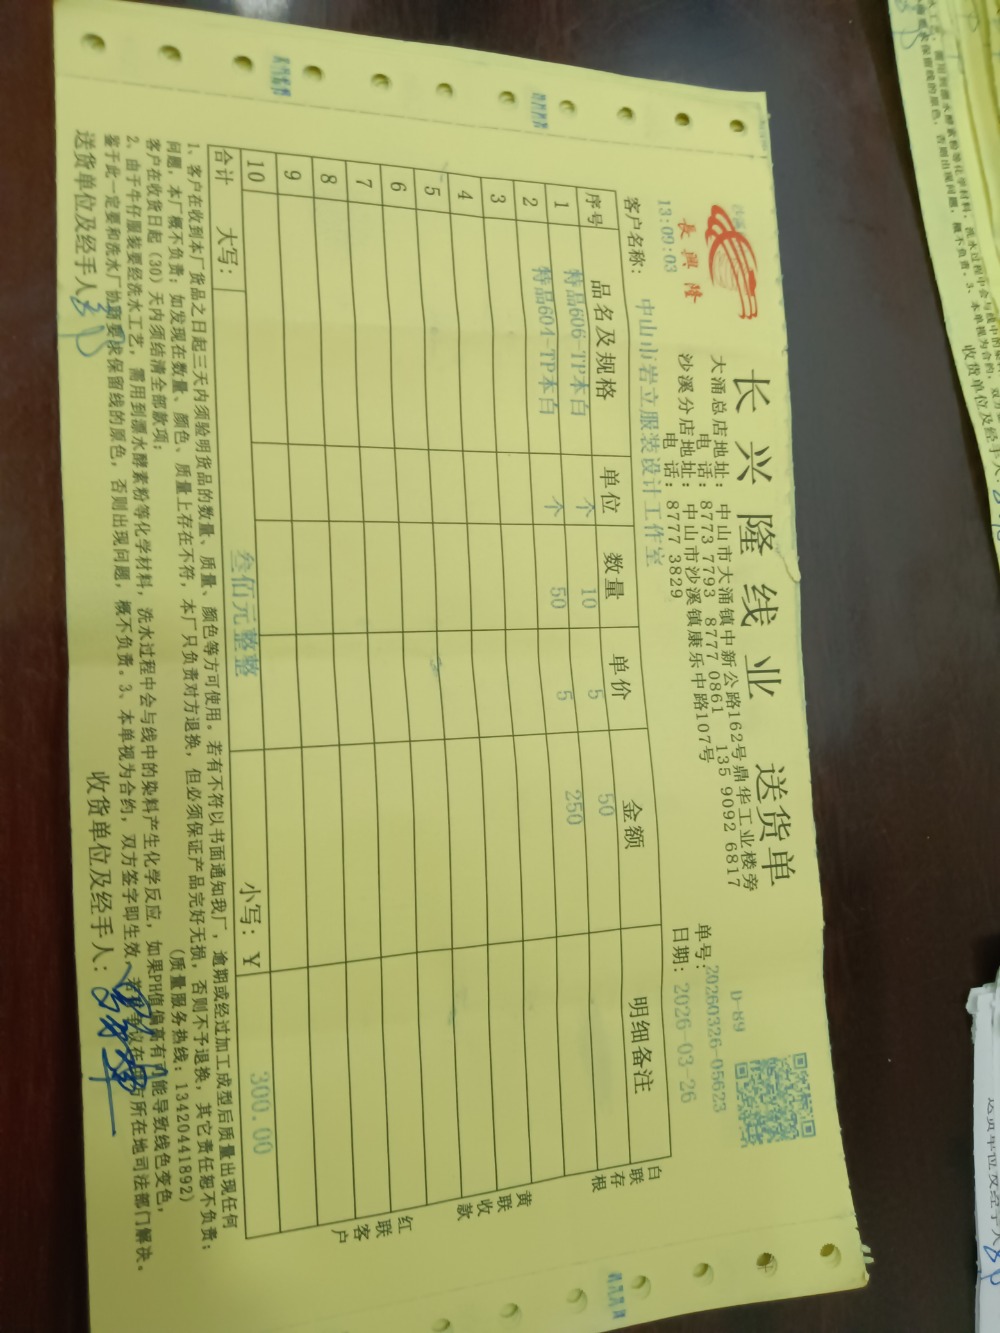 长兴隆线业 送货单
長興隆
大涌总店地址：中山市大涌镇中新公路162号鼎华工业楼旁
电 话：8773 7793 8777 0861 135 9092 6817
沙溪分店地址：中山市沙溪镇康乐中路107号
电 话：8777 3829
D-89
单号：20260326-05623
13:09:03
日期：2026-03-26
客户名称：中山市岩立服装设计工作室
序号 品名及规格 单位 数量 单价 金额 明细备注
1 特品606-TP本白 个 10 5 50
2 特品604-TP本白 个 50 5 250
3
4
5
6
7
8
9
10
合计 大写：叁佰元整整 小写：￥ 300.00
白联存根
黄联收款
红联客户
1、客户在收到本厂货品之日起三天内须验明货品的数量、质量、颜色等方可使用。若有不符以书面通知我厂，逾期或经过加工成型后质量出现任何
问题，本厂概不负责；如发现在数量、颜色、质量上存在不符，本厂只负责对方退换，但必须保证产品完好无损，否则不予退换，其它责任恕不负责；
客户在收货日起（30）天内须结清全部款项； （质量服务热线：13420441892）
2、由于牛仔服装要经洗水工艺，需用到漂水酵素粉等化学材料，洗水过程中会与线中的染料产生化学反应，如果PH值偏高有可能导致线色变色，
鉴于此一定要和洗水厂协商要求保留线的原色，否则出现问题，概不负责。3、本单视为合约，双方签字即生效，若有争议在我方所在地司法部门解决。
送货单位及经手人：
收货单位及经手人：